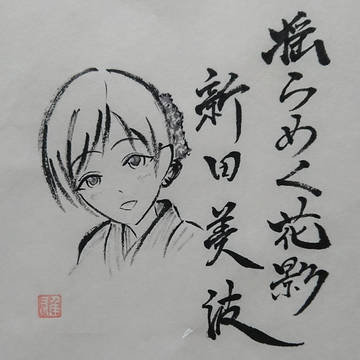 揺らめく花影
新田美波